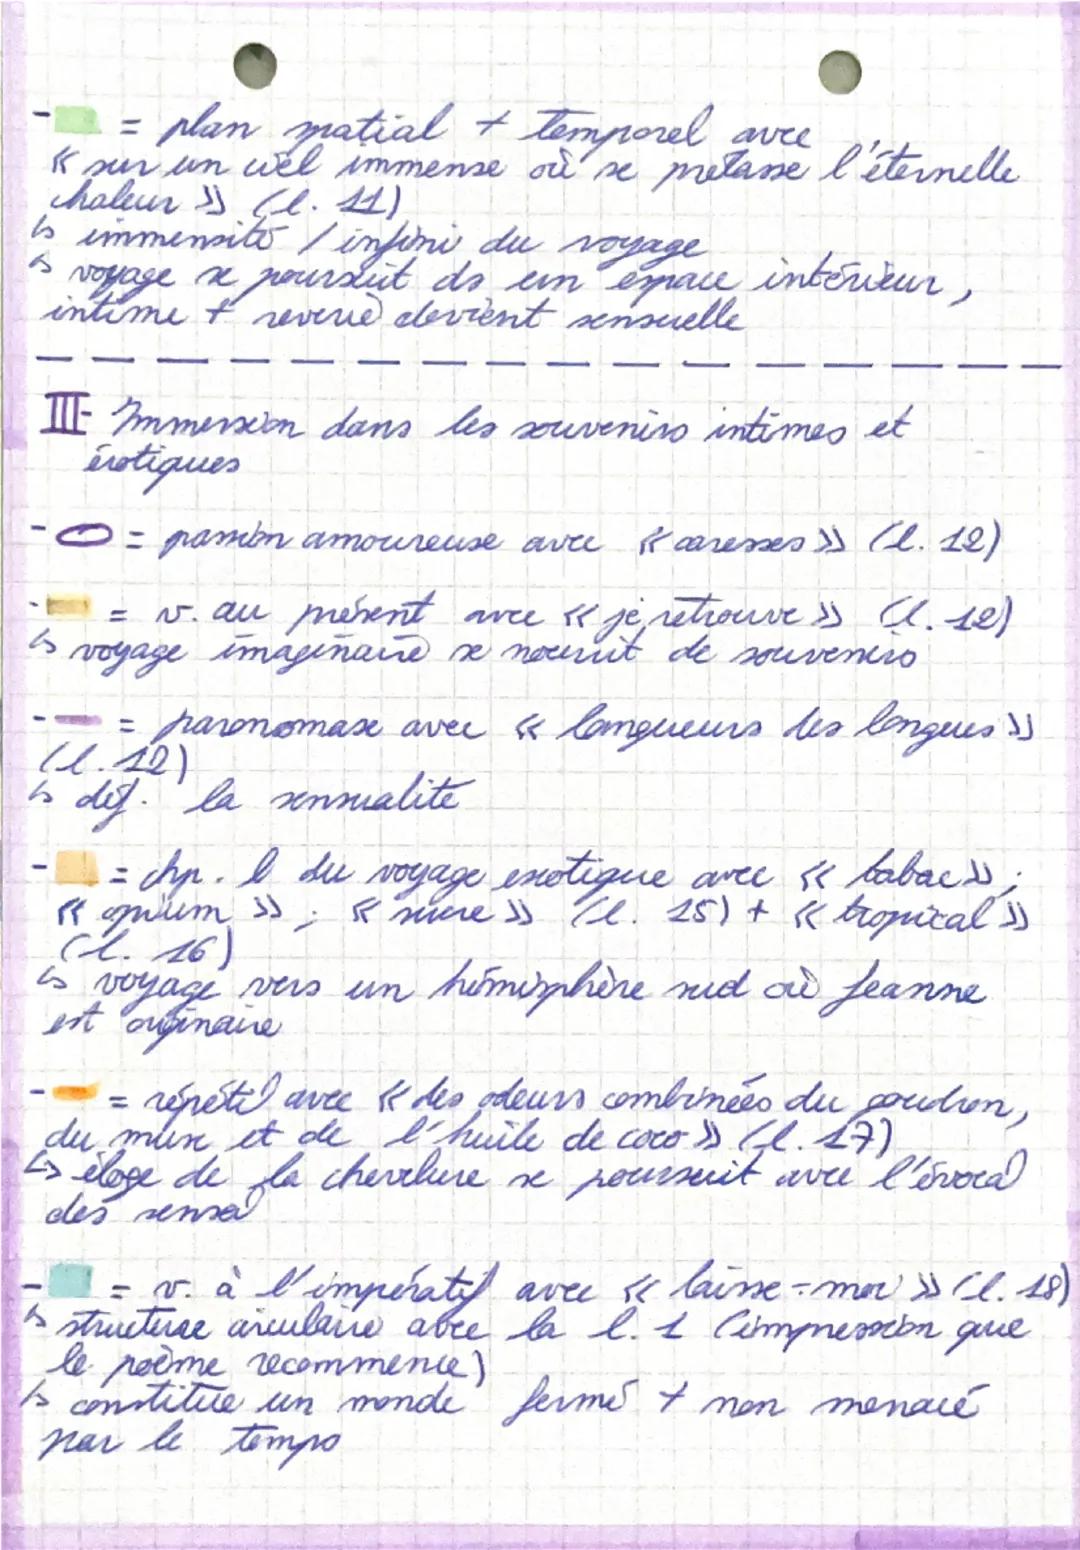 - = plan spatial + temporel avec
« sur un ciel immense où se prélasse l'éternelle
chaleur » (l. 11)
↳ immensité / infini du voyage
↳ voyage se poursuit ds un espace intérieur,
intime + reverie devient sensuelle
III- Immersion dans les souvenirs intimes et
érotiques
- = passion amoureuse avec « caresses » (l. 12)
- = v. au présent avec « je retrouve » (l. 12)
↳ voyage imaginaire se nourrit de souvenirs
- = paronomase avec « langueurs des longues »
(l. 12)
↳ déf. la sensualité
- = chp. l du voyage exotique avec « tabac » ;
« opium » ; « sucre » (l. 15) + « tropical »
(l. 16)
↳ voyage vers un hémisphère sud où Jeanne
est originaire
- = répéti) avec « des odeurs combinées du goudron,
du musc et de l'huile de coco » (l. 17)
↳ éloge de la chevelure se poursuit avec l'évoca)
des sensa)
- = v. à l'impératif avec « laisse-moi » (l. 18)
↳ structure circulaire avec la l. 1 (impression que
le poème recommence)
↳ constitue un monde fermé + non menacé
par le temps